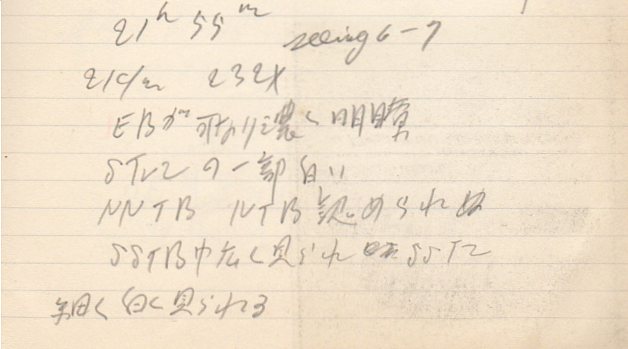 21h 55m seeing 6-7
21c/m 232X
EBが可なり濃く明瞭
STrZの一部白い
NNTB NTB認められぬ
SSTB巾広く見られ SSTZ
細く白く見られる